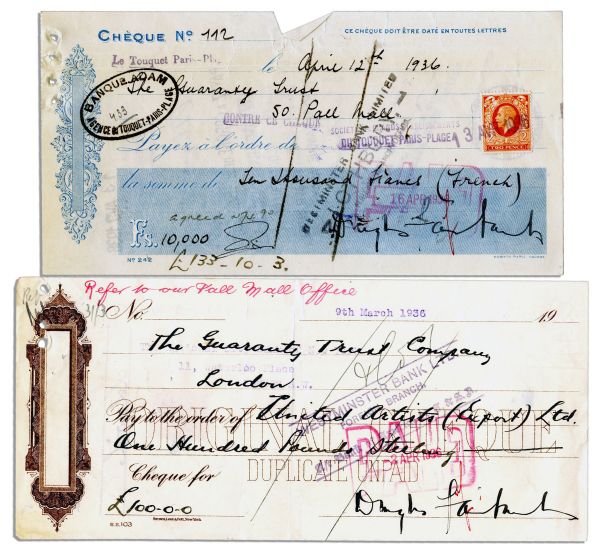 CHÈQUE Nº 112
CE CHÈQUE DOIT ÊTRE DATÉ EN TOUTES LETTRES
Le Touquet Paris-Pl.
le April 12th 1936.
BANQUE ADAM
433
AGENCE de TOUQUET-PARIS-PLAGE
The Guaranty Trust
50. Pall Mall
CONTRE CE CHÈQUE
DU TOUQUET PARIS-PLAGE
WESTMINSTER BANK LIMITED
TWO PENCE
Payez à l'ordre de
la somme de Ten Thousand Francs (French)
16 APR 1936
Fs. 10,000
Douglas Fairbanks
Nº 242
£133-10-3.
Refer to our Pall Mall Office
No.
9th March 1936
19
The Guaranty Trust Company
London
WESTMINSTER BANK LTD
BRANCH
Pay to the order of United Artists (Export) Ltd.
One Hundred Pounds Sterling
PAID
DUPLICATE UNPAID
Cheque for
£100-0-0
Douglas Fairbanks
B.E.103